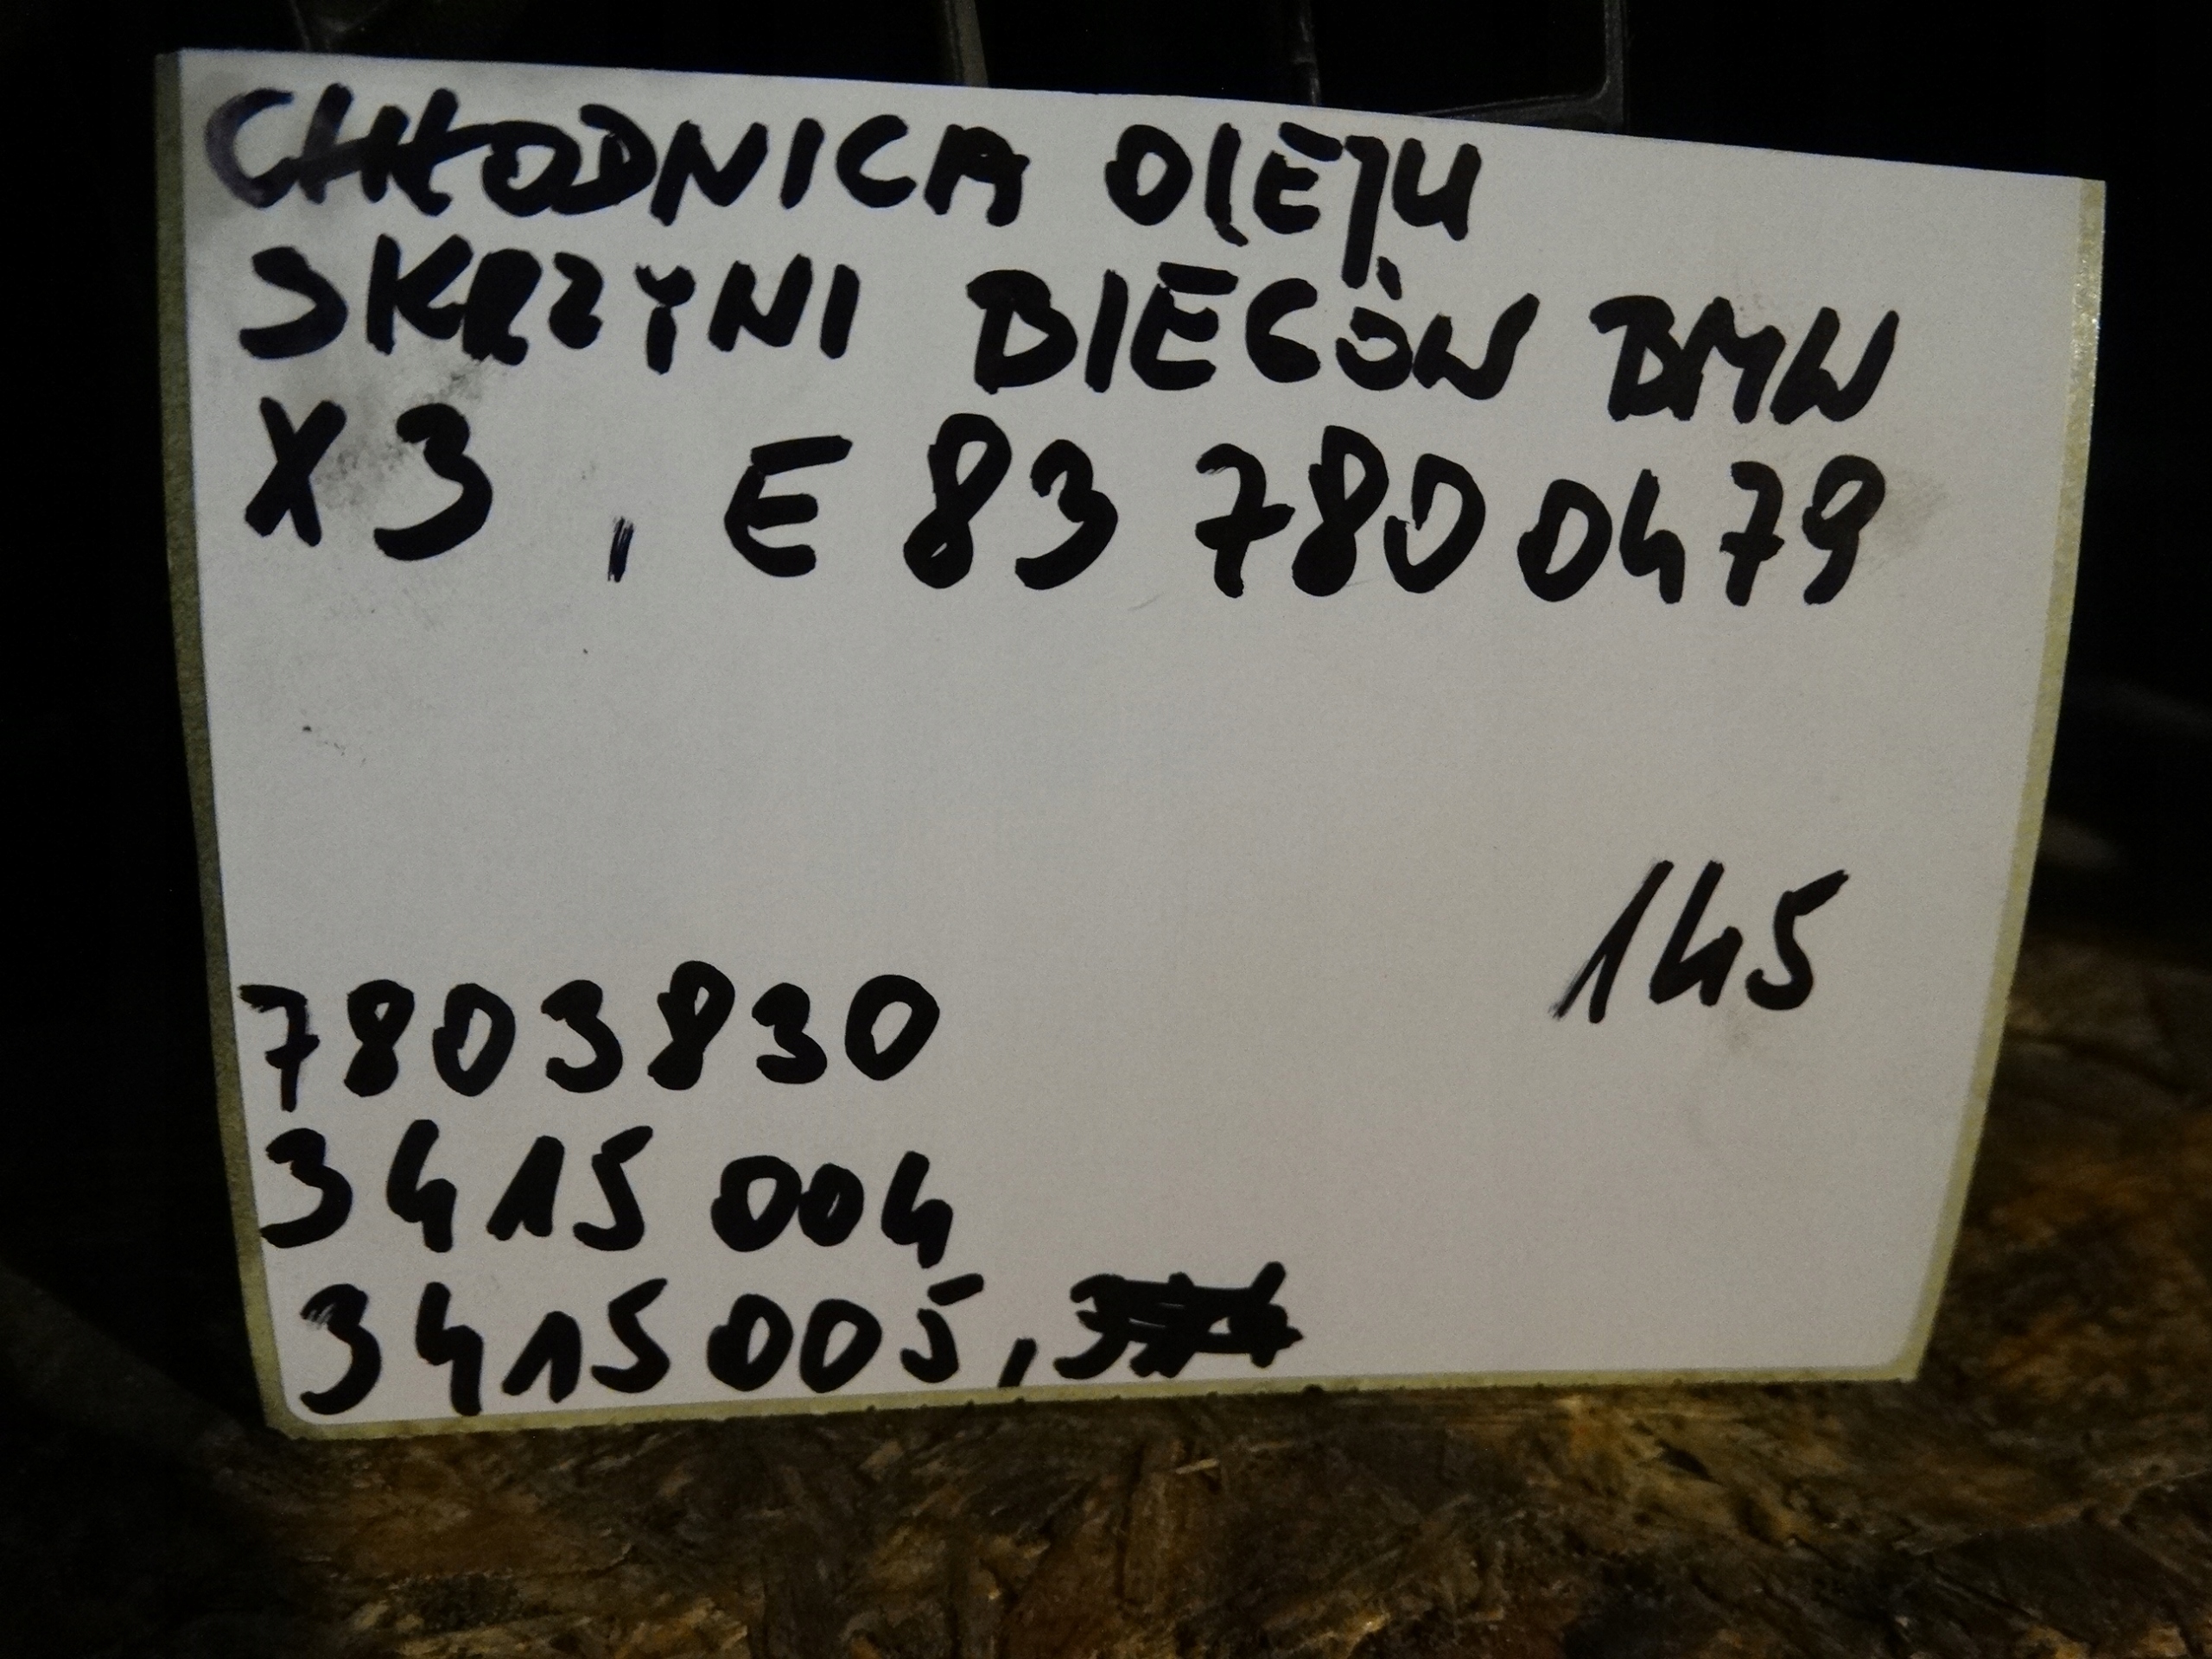 CHŁODNICA OLEJU
SKRZYNI BIEGÓW BMW
X3, E83 7800479
145
7803830
3415004
3415005,